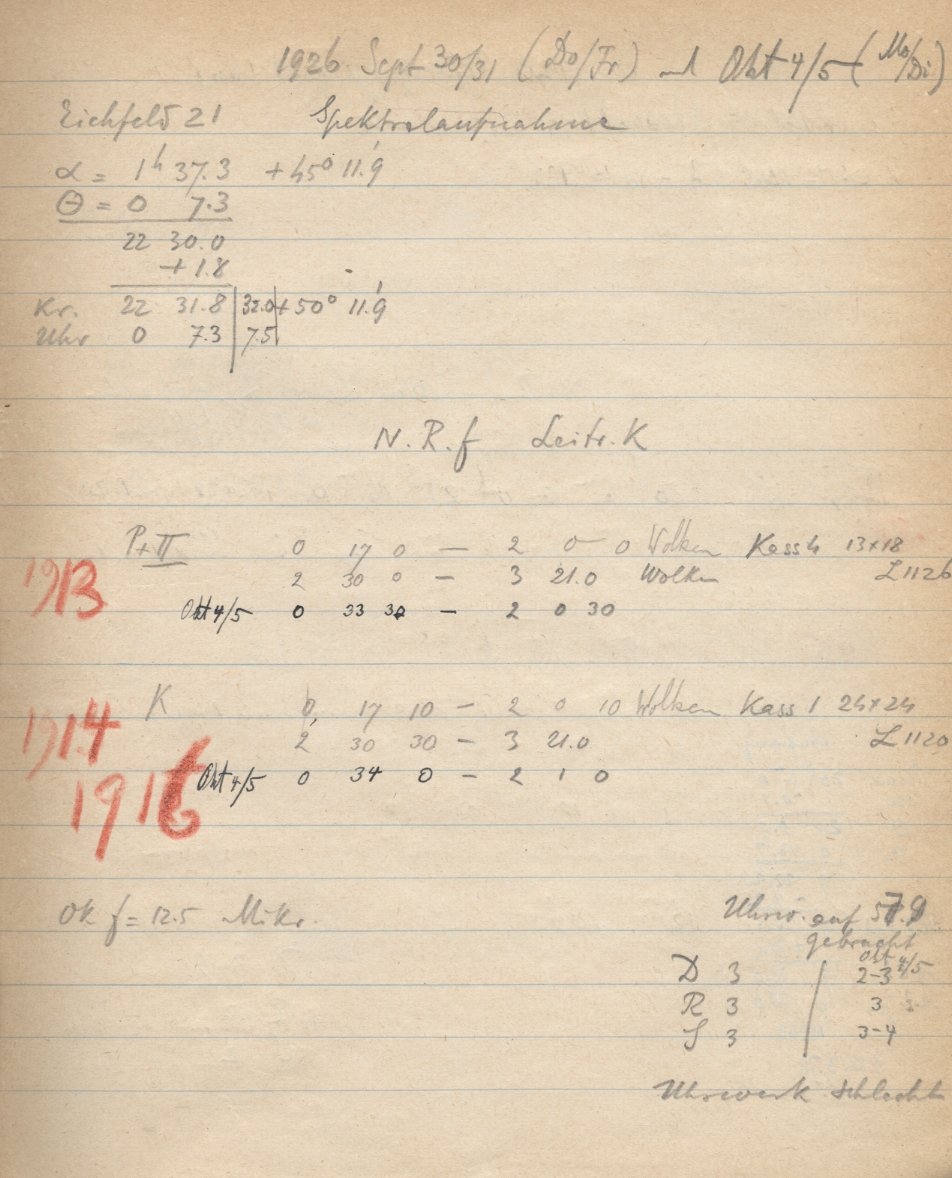 1926 Sept 30/31 (Do/Fr) und Okt 4/5 (Mo/Di)
Eichfeld 21 Spektralaufnahme
α = 1h 37.3 +45° 11.'9
Θ = 0 7.3
22 30.0
+ 1.8
Kr. 22 31.8 32.0 +50° 11.'9
Uhr 0 7.3 7.5
N.R.f Leitr. K
P+II 0 17 0 — 2 0 0 Wolken Kass 4 13x18
1913 2 30 0 — 3 21.0 Wolken L1126
Okt 4/5 0 33 30 — 2 0 30
K 0 17 10 — 2 0 10 Wolken Kass 1 24x24
1914 2 30 30 — 3 21.0 L1120
1916 Okt 4/5 0 34 0 — 2 1 0
Ok f = 12.5 Mikr. Uhrw. auf 57.9
gebracht
Okt 4/5
D 3 2-3
R 3 3
S 3 3-4
Uhrwerk schlecht